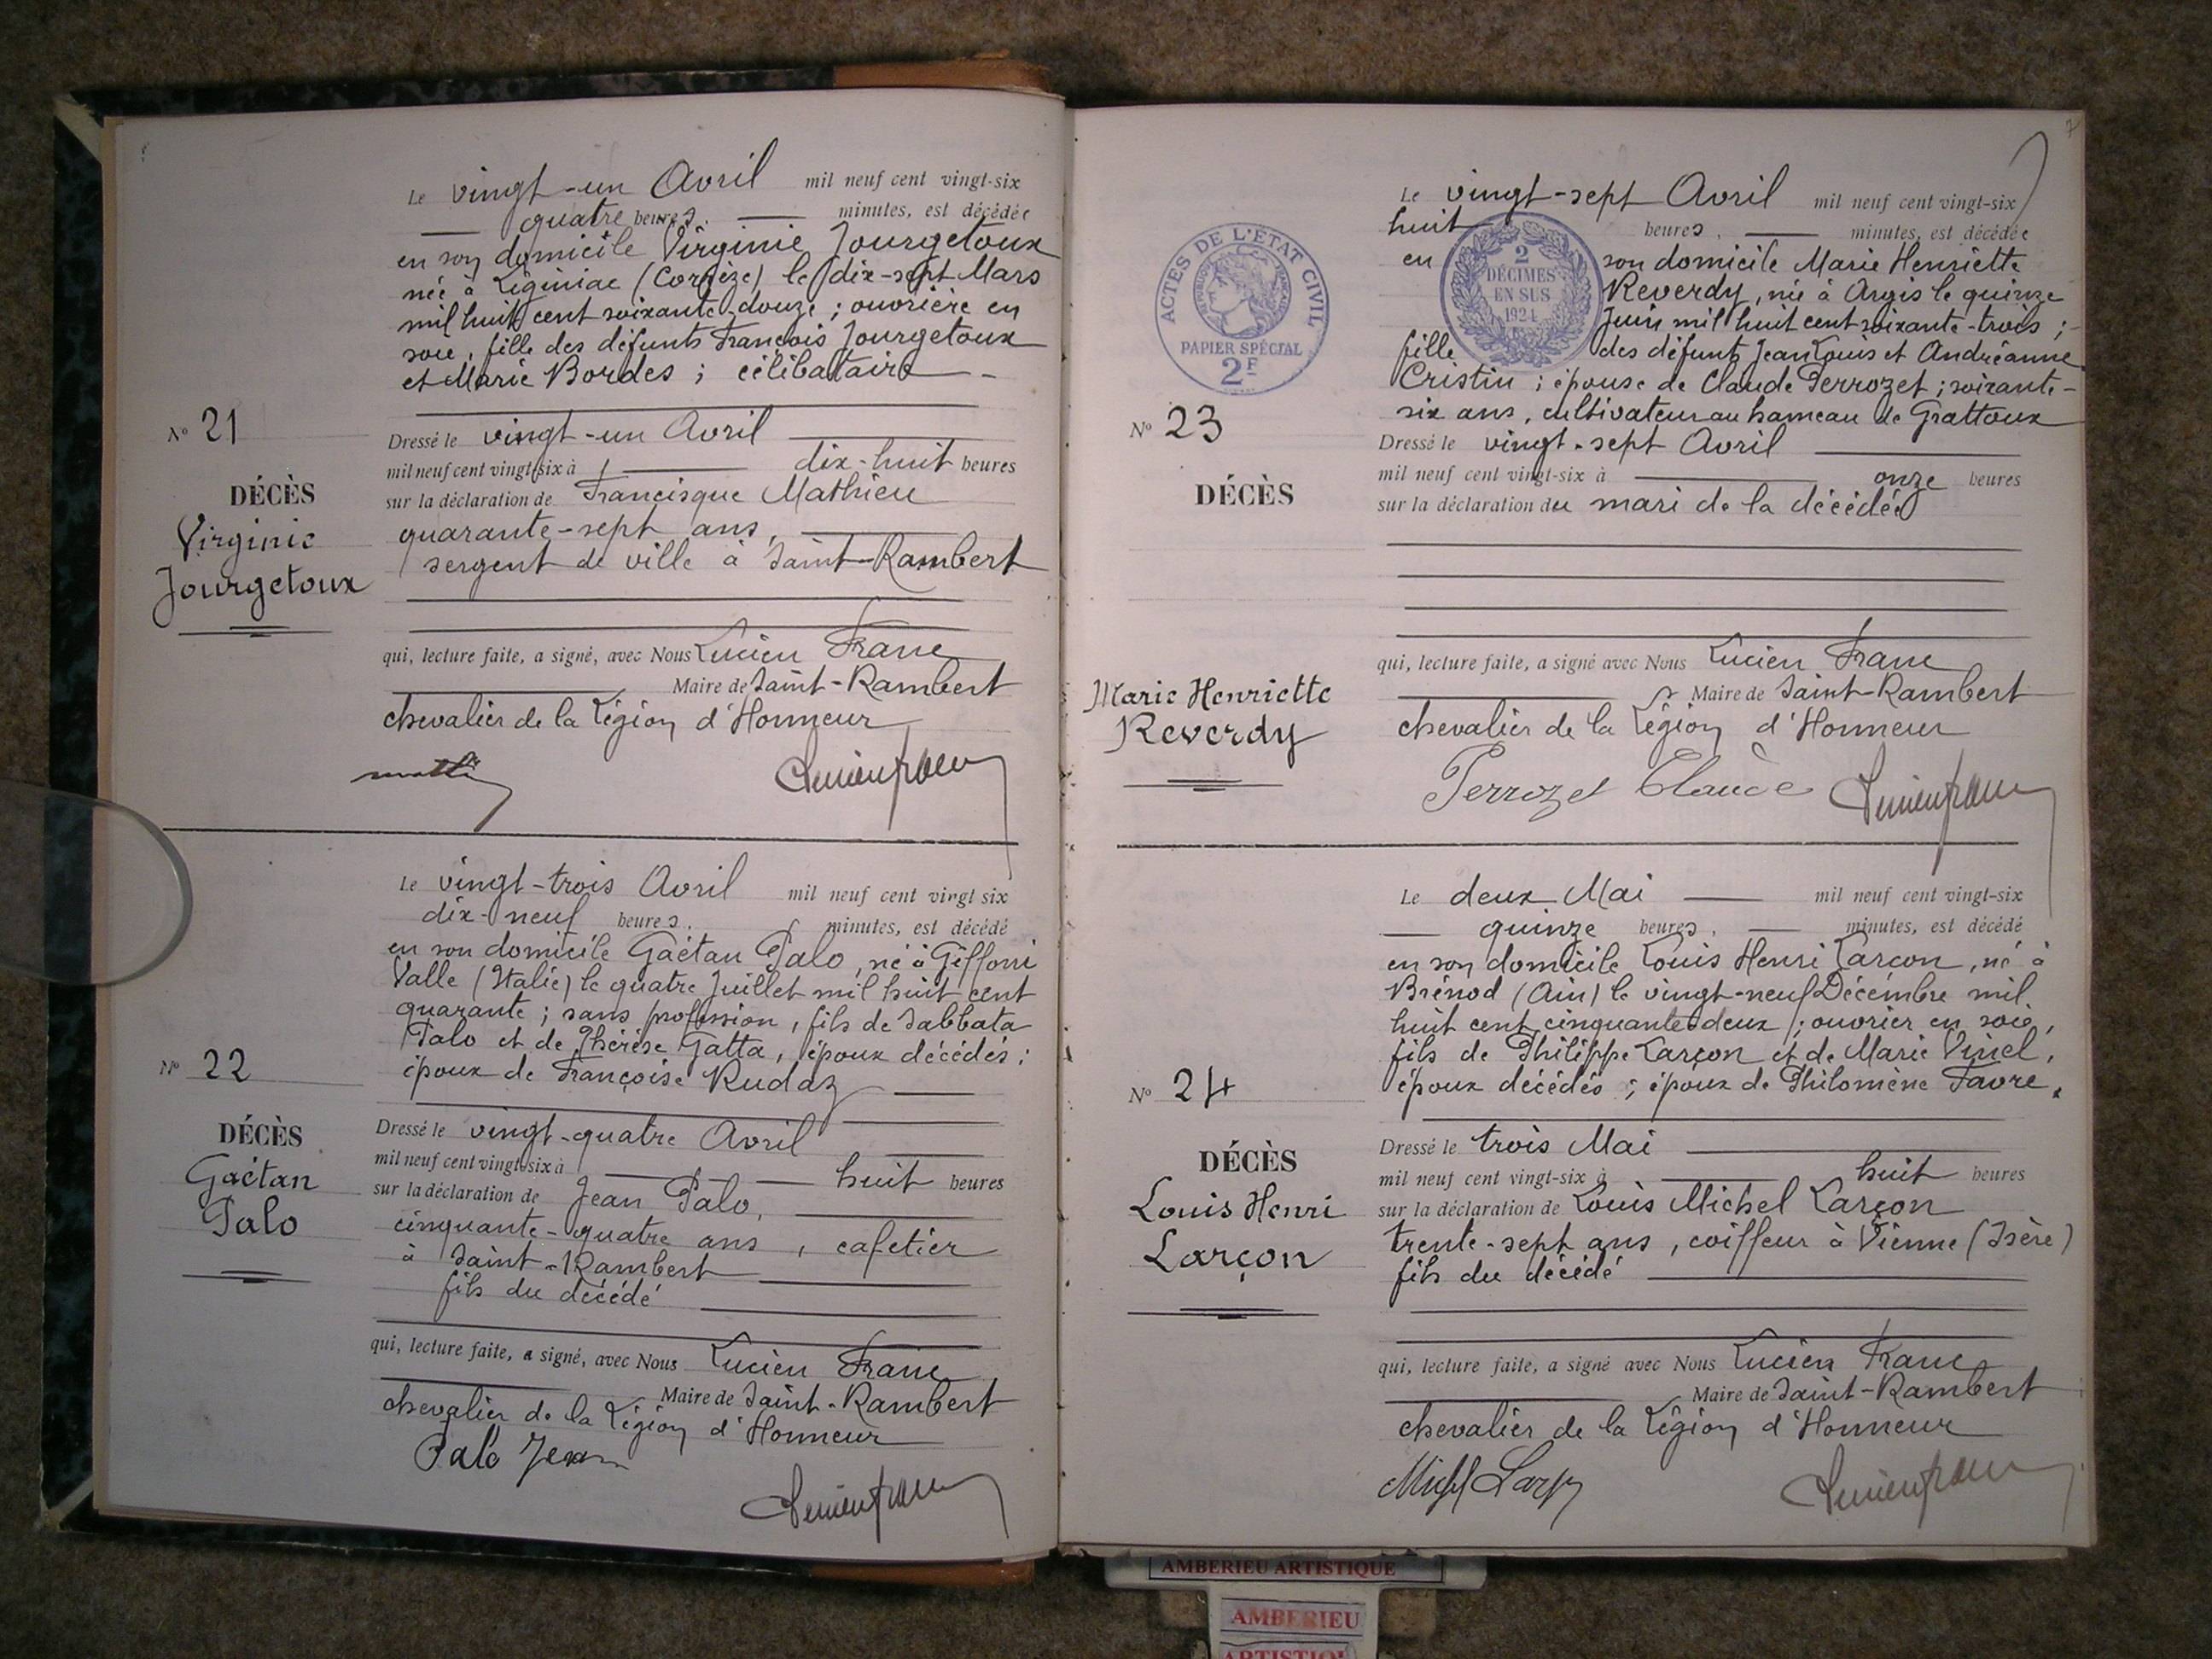 Le vingt-un Avril mil neuf cent vingt-six
quatre heures. minutes, est décédée
en son domicile Virginie Jourgetoux
née à Liginiac (Corrèze) le dix-sept Mars
mil huit cent soixante-douze ; ouvrière en
soie, fille des défunts François Jourgetoux
et Marie Bordes ; célibataire
N° 21
DÉCÈS
Virginie
Jourgetoux
Dressé le vingt-un Avril
mil neuf cent vingt-six à dix-huit heures
sur la déclaration de Francisque Mathieu
quarante-sept ans,
sergent de ville à Saint-Rambert
qui, lecture faite, a signé, avec Nous Lucien Franc
Maire de Saint-Rambert
chevalier de la Légion d'Honneur
Le vingt-trois Avril mil neuf cent vingt six
dix-neuf heures, minutes, est décédé
en son domicile Gaëtan Palo, né à Giffoni
Valle (Italie) le quatre Juillet mil huit cent
quarante ; sans profession, fils de Sabbata
Palo et de Thérèse Gatta, époux décédés ;
époux de Françoise Rudaz
N° 22
DÉCÈS
Gaëtan
Palo
Dressé le vingt-quatre Avril
mil neuf cent vingt-six à huit heures
sur la déclaration de Jean Palo,
cinquante-quatre ans, cafetier
à Saint-Rambert
fils du décédé
qui, lecture faite, a signé, avec Nous Lucien Franc
Maire de Saint-Rambert
chevalier de la Légion d'Honneur
Palo Jean
7
ACTES DE L'ÉTAT CIVIL
RÉPUBLIQUE FRANÇAISE
PAPIER SPÉCIAL
2F
2
DÉCIMES
EN SUS
1924
Le vingt-sept Avril mil neuf cent vingt-six
huit heures, minutes, est décédée
en son domicile Marie Henriette
Reverdy, née à Argis le quinze
Juin mil huit cent soixante-trois ;
fille des défunts Jean Louis et Andréanne
Cristin ; épouse de Claude Perrozet ; soixante-
six ans, cultivateur au hameau de Grattoux
N° 23
DÉCÈS
Marie Henriette
Reverdy
Dressé le vingt-sept Avril
mil neuf cent vingt-six à onze heures
sur la déclaration du mari de la décédée
qui, lecture faite, a signé avec Nous Lucien Franc
Maire de Saint-Rambert
chevalier de la Légion d'Honneur
Perrozet Claude
Le deux Mai mil neuf cent vingt-six
quinze heures, minutes, est décédé
en son domicile Louis Henri Larçon, né à
Brénod (Ain) le vingt-neuf Décembre mil
huit cent cinquante-deux ; ouvrier en soie,
fils de Philippe Larçon et de Marie Vinel,
époux décédés ; époux de Philomène Favre.
N° 24
DÉCÈS
Louis Henri
Larçon
Dressé le trois Mai
mil neuf cent vingt-six à huit heures
sur la déclaration de Louis Michel Larçon
trente-sept ans, coiffeur à Vienne (Isère)
fils du décédé
qui, lecture faite, a signé avec Nous Lucien Franc
Maire de Saint-Rambert
chevalier de la Légion d'Honneur
AMBERIEU ARTISTIQUE
AMBERIEU
ARTISTIQUE